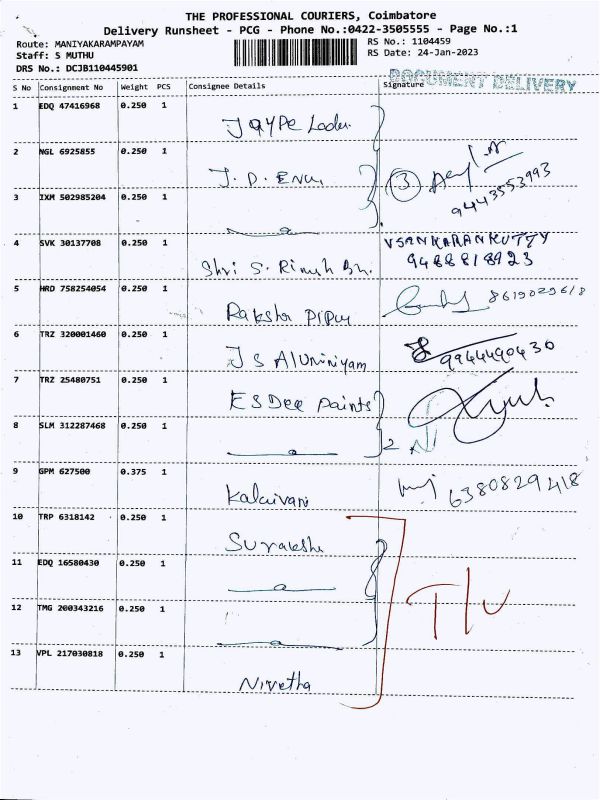 THE PROFESSIONAL COURIERS, Coimbatore
Delivery Runsheet - PCG - Phone No.:0422-3505555 - Page No.:1
Route: MANIYAKARAMPAYAM
RS No.: 1104459
Staff: S MUTHU
RS Date: 24-Jan-2023
DRS No.: DCJB110445901
DOCUMENT DELIVERY
S No Consignment No Weight PCS Consignee Details Signature
1 EDQ 47416968 0.250 1
2 NGL 6925855 0.250 1 J. D. ENU
3 9443553993
3 IXM 502985204 0.250 1
4 SVK 30137708 0.250 1 Shri S.
VSANKARANKUTTY
9488818923
5 HRD 758254054 0.250 1 Raksha
8619029618
6 TRZ 320001460 0.250 1 J S Aluminiyam
9944490430
7 TRZ 25480751 0.250 1 ESDee paints
8 SLM 312287468 0.250 1
2
9 GPM 627500 0.375 1 Kalaivani
6380829418
10 TRP 6318142 0.250 1 Suraksha
11 EDQ 16580430 0.250 1
12 TMG 200343216 0.250 1
T/U
13 VPL 217030818 0.250 1 Nivetha